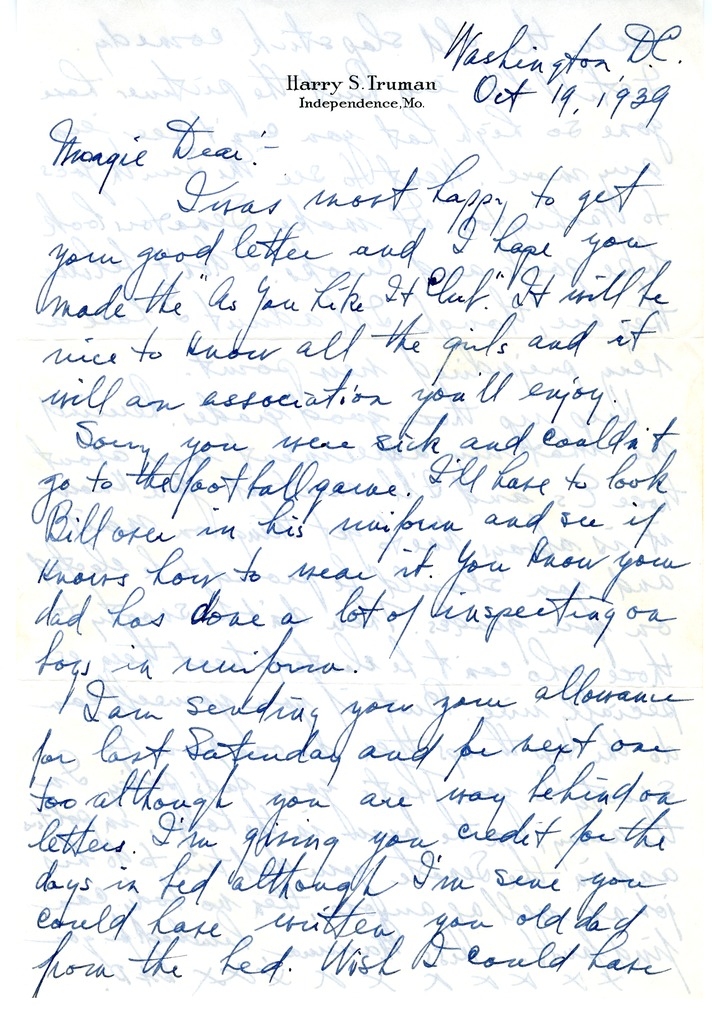 Washington, D.C.
Harry S. Truman
Independence, Mo.
Oct 19, 1939
Margie Dear:-
I was most happy to get
your good letter and I hope you
made the "As You Like It Club." It will be
nice to know all the girls and it
will an association you'll enjoy.
Sorry you were sick and couldn't
go to the football game. I'll have to look
Bill over in his uniform and see if
knows how to wear it. You know your
dad has done a lot of inspecting on
boys in uniform.
I am sending you your allowance
for last Saturday and for next one
too although you are way behind on
letters. I'm giving you credit for the
days in bed although I'm sure you
could have written you old dad
from the bed. Wish I could have